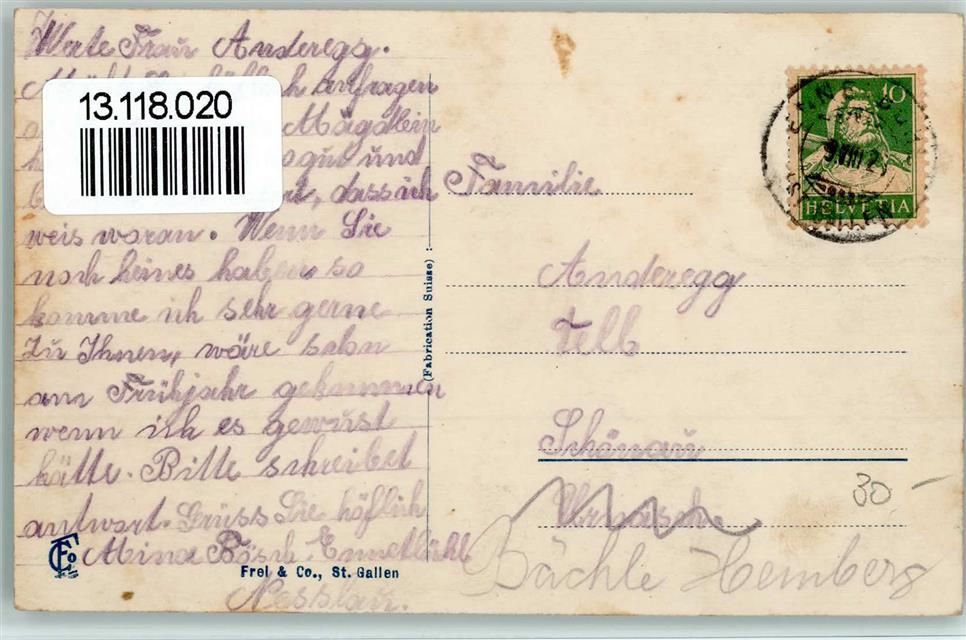 Werte Frau Anderegg.
anfragen
13.118.020
Mägdlein
und
dass ich
weis woran. Wenn Sie
noch keines haben, so
komme ich sehr gerne
zu Ihnen, wäre schon
am Frühjahr gekommen
wenn ich es gewusst
hätte. Bitte schreibet
antwort. Grüss Sie höflich
Mina Bösch. Ennetbühl
Nesslau.
Frei & Co., St. Gallen
(Fabrication Suisse)
10
HELVETIA
Familie
Anderegg
Tell
Schönau
Urnäsch
30.-
Bächle Hemberg